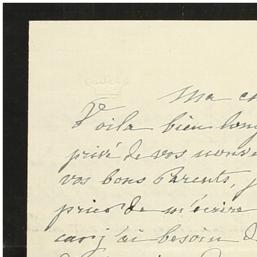 Ma
Voilà bien long
privé de vos nouve
vos bons Parents, j
prier de m'écrire
car j'ai besoin d